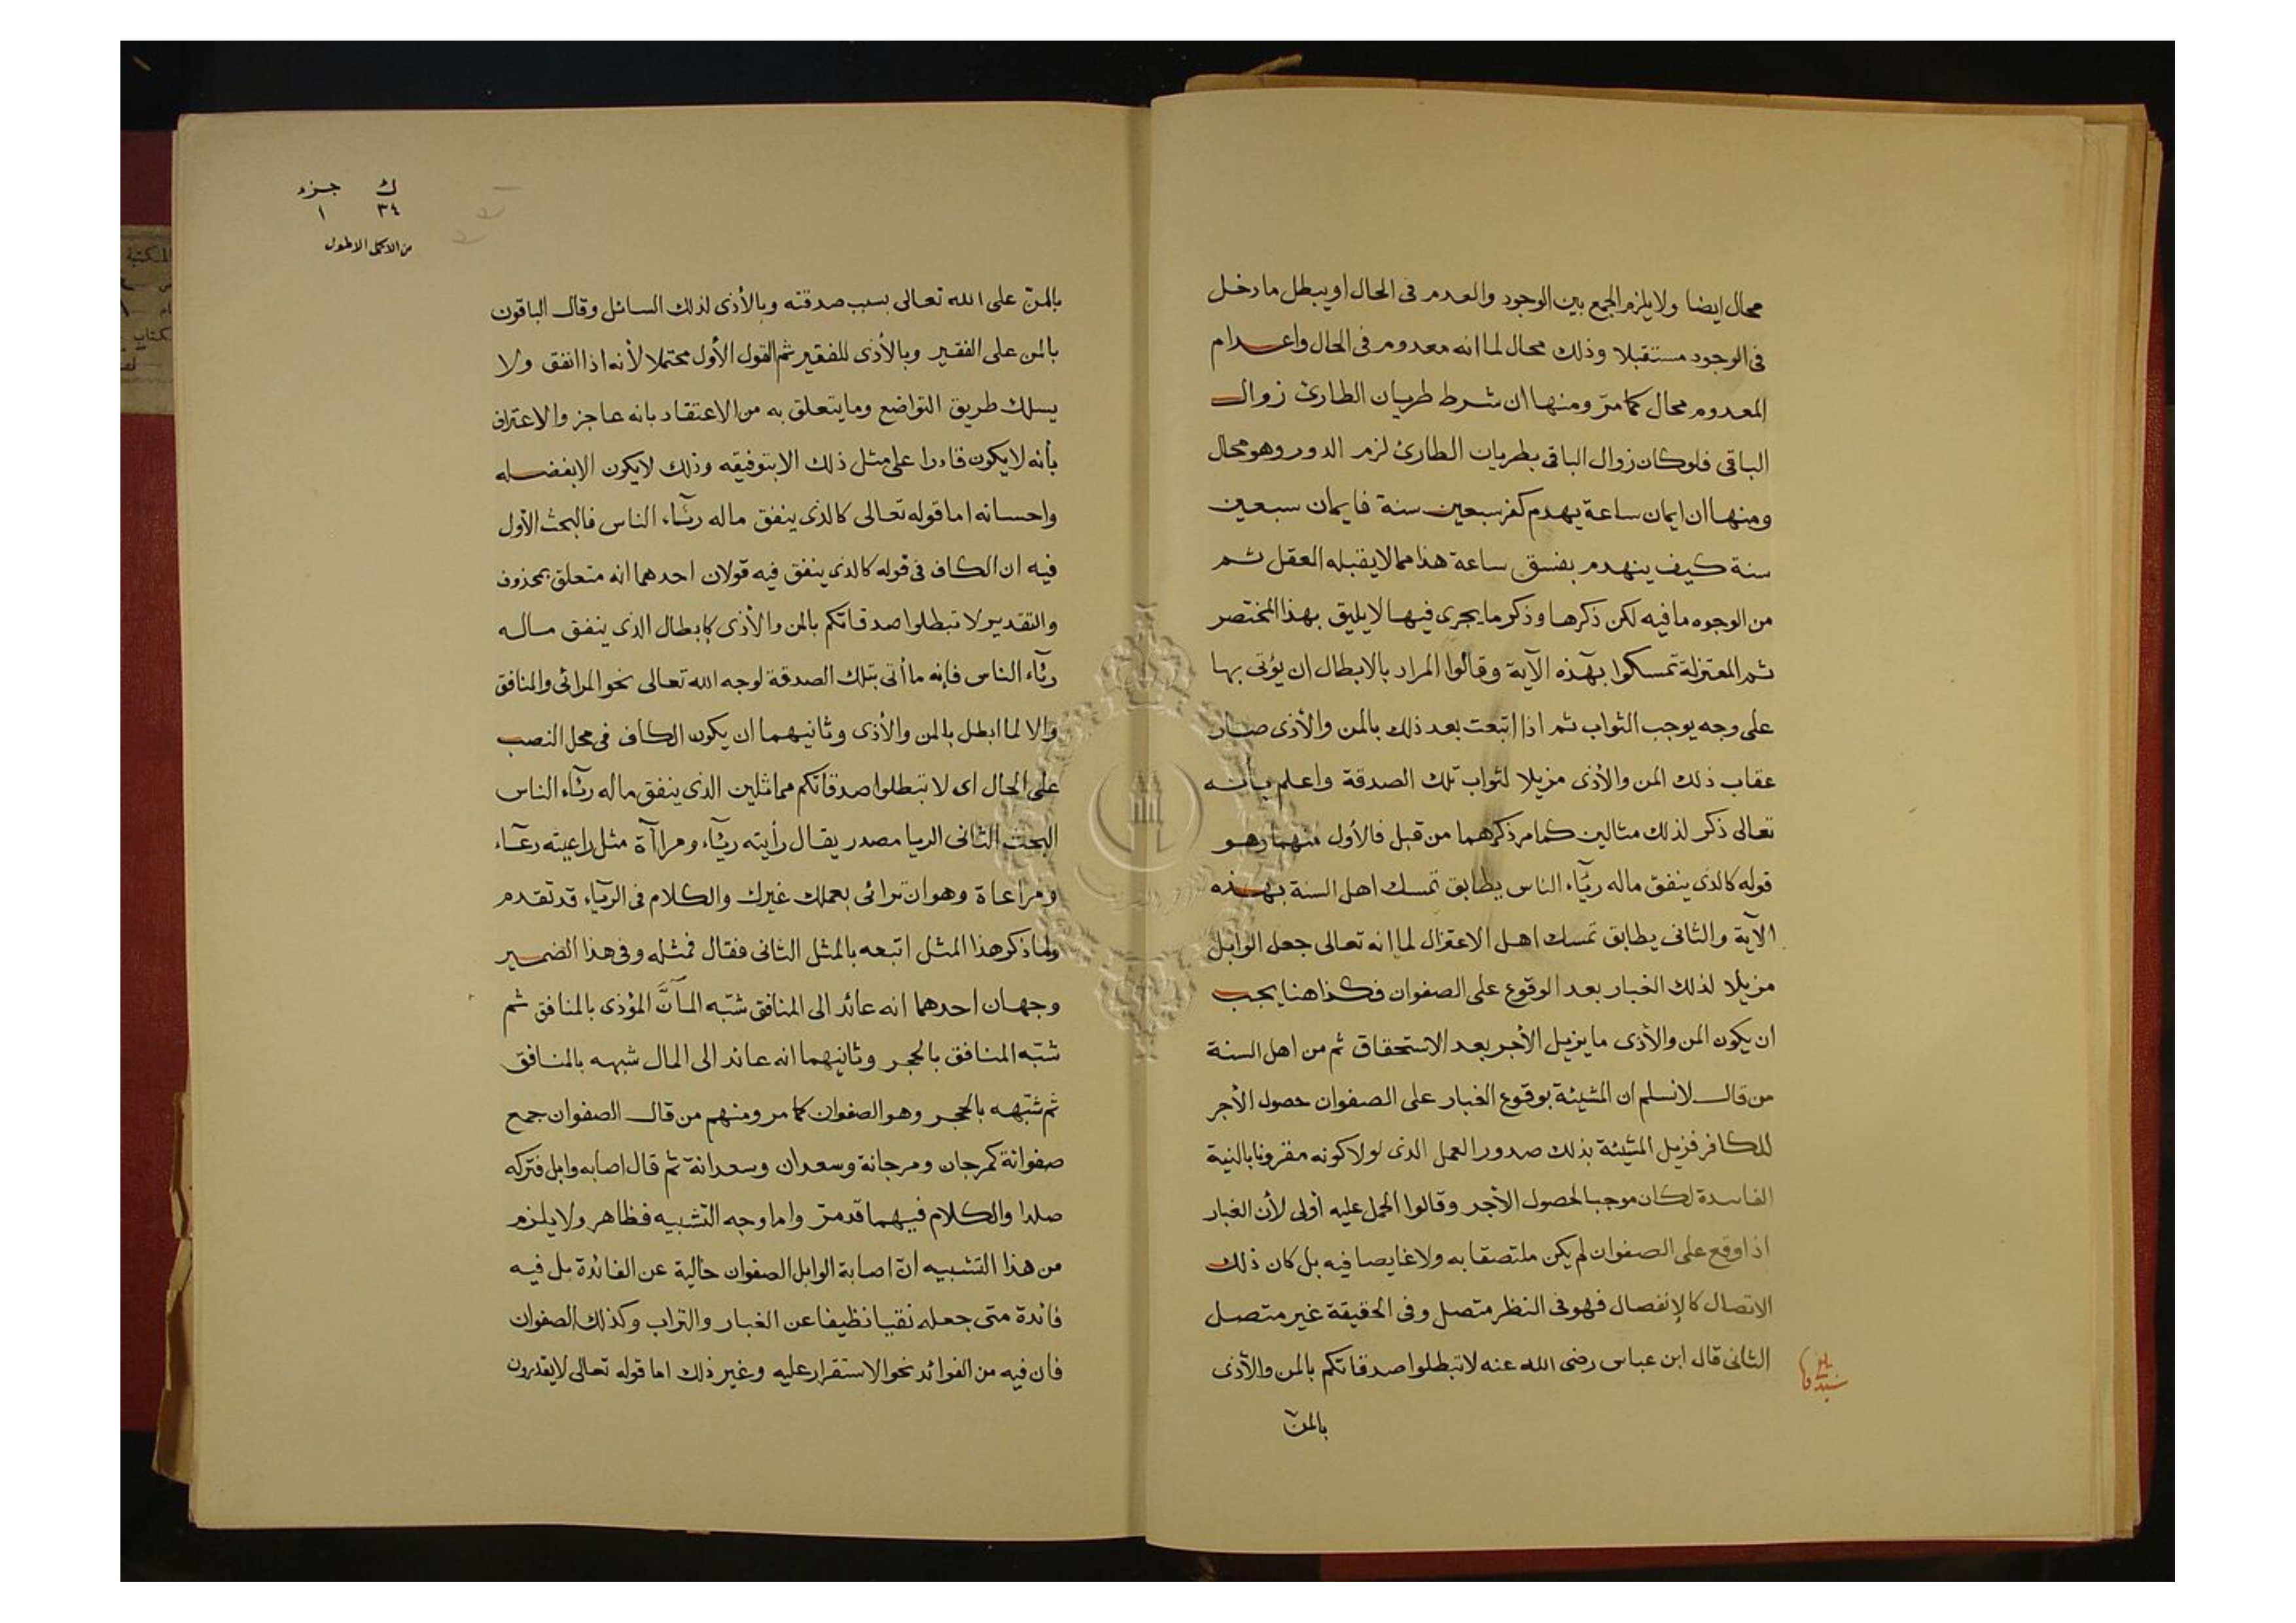 محال ايضا ولا يلزم الجمع بين الوجود والعدم فى الحال او يبطل ما دخل
فى الوجود مستقبلا وذلك محال لما انه معدوم فى الحال واعدام
المعدوم محال كما مرّ ومنها ان شرط طريان الطارئ زوال
الباقى فلو كان زوال الباقى بطريان الطارئ لزم الدور وهو محال
ومنها ان ايمان ساعة يهدم كفر سبعين سنة فايمان سبعين
سنة كيف ينهدم بفسق ساعة هذا مما لا يقبله العقل ثم
من الوجوه ما فيه لكن ذكرها وذكر ما يجرى فيها لا يليق بهذا المختصر
ثم المعتزلة تمسكوا بهذه الآية وقالوا المراد بالابطال ان يؤتى بها
على وجه يوجب الثواب ثم اذا اتبعت بعد ذلك بالمن والأذى صار
عقاب ذلك المن والأذى مزيلا لثواب تلك الصدقة واعلم بأنه
تعالى ذكر لذلك مثالين كما مر ذكرهما من قبل فالأول منهما وهو
قوله كالذى ينفق ماله ريآء الناس يطابق تمسك اهل السنة بهذه
الآية والثانى يطابق تمسك اهل الاعتزال لما انه تعالى جعل الوابل
مزيلا لذلك الغبار بعد الوقوع على الصفوان فكذا هنا يجب
ان يكون المن والأذى ما يزيل الأجر بعد الاستحقاق ثم من اهل السنة
من قال لا نسلم ان المشيئة بوقوع الغبار على الصفوان حصول الأجر
للكافر فزيل المشيئة بذلك صدور العمل الذى لولا كونه مقرونا بالنية
الفاسدة لكان موجبا لحصول الأجر وقالوا الحمل عليه أولى لأن الغبار
اذا وقع على الصفوان لم يكن ملتصقا به ولا غايصا فيه بل كان ذلك
الاتصال كالإنفصال فهو فى النظر متصل وفى الحقيقة غير متصل
الثانى قال ابن عباس رضى الله عنه لا تبطلوا صدقاتكم بالمن والأذى
بالمنّ
ك جزء
٣٤ ١
من الاكمل الاطول
بالمنّ على الله تعالى بسبب صدقته وبالأذى لذلك السائل وقال الباقون
بالمن على الفقير وبالأذى للفقير ثم القول الأول محتملا لأنه اذا انفق ولا
يسلك طريق التواضع وما يتعلق به من الاعتقاد بانه عاجز والاعتراف
بأنه لا يكون قادرا على مثل ذلك الا بتوفيقه وذلك لا يكون الا بفضله
واحسانه اما قوله تعالى كالذى ينفق ماله رئآء الناس فالبحث الأول
فيه ان الكاف فى قوله كالذى ينفق فيه قولان احدهما انه متعلق بمحذوف
والتقدير لا تبطلوا صدقاتكم بالمن والأذى كإبطال الذى ينفق ماله
رئآء الناس فإنه ما أتى بتلك الصدقة لوجه الله تعالى نحو المرائى والمنافق
والا لما ابطل بالمن والأذى وثانيهما ان يكون الكاف فى محل النصب
على الحال اى لا تبطلوا صدقاتكم مماثلين الذى ينفق ماله رئآء الناس
البحث الثانى الريا مصدر يقال رأيته ريآء ومراآة مثل راعيته رعآء
ومراعاة وهو ان ترائى بعملك غيرك والكلام فى الريآء قد تقدم
ولما ذكر هذا المثل اتبعه بالمثل الثانى فقال فمثله وفى هذا الضمير
وجهان احدهما انه عائد الى المنافق شبّه المآنَّ المؤذى بالمنافق ثم
شبّه المنافق بالحجر وثانيهما انه عائد الى المال شبهه بالمنافق
ثم شبّهه بالحجر وهو الصفوان كما مر ومنهم من قال الصفوان جمع
صفوانة كمرجان ومرجانة وسعدان وسعدانة ثم قال اصابه وابل فتركه
صلدا والكلام فيهما قد مرّ واما وجه التشبيه فظاهر ولا يلزم
من هذا التشبيه انّ اصابة الوابل الصفوان خالية عن الفائدة بل فيه
فائدة متى جعله نقيا نظيفا عن الغبار والتراب وكذلك الصفوان
فان فيه من الفوائد نحو الاستقرار عليه وغير ذلك اما قوله تعالى لا يقدرون